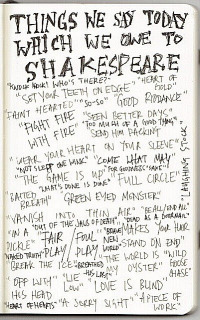 THINGS WE SAY TODAY
WHICH WE OWE TO
SHAKESPEARE
"KNOCK KNOCK! WHO'S THERE?" "HEART OF GOLD"
"SET YOUR TEETH ON EDGE"
"FAINT HEARTED" "SO-SO" "GOOD RIDDANCE"
"FIGHT FIRE WITH FIRE" "SEEN BETTER DAYS"
"TOO MUCH OF A GOOD THING"
"SEND HIM PACKING"
"WEAR YOUR HEART ON YOUR SLEEVE"
"NOT SLEPT ONE WINK" "COME WHAT MAY"
"THE GAME IS UP" "FOR GOODNESS' SAKE"
"WHAT'S DONE IS DONE" "FULL CIRCLE"
LAUGHING STOCK
"BATED BREATH" GREEN EYED MONSTER"
"VANISH INTO THIN AIR" "BE ALL/END ALL"
"OUT OF THE JAWS OF DEATH" "DEAD AS A DOORNAIL"
"IN A PICKLE" "FAIR PLAY" "FOUL PLAY" "BRAVE NEW WORLD" "MAKES YOUR HAIR STAND ON END"
"NAKED TRUTH"
"BREAK THE ICE" "BREATHED HIS LAST" "THE WORLD IS MY OYSTER" "WILD GOOSE CHASE"
OFF WITH HIS HEAD "LIE LOW" "LOVE IS BLIND"
"HEART OF HEARTS" "A SORRY SIGHT" "A PIECE OF WORK"